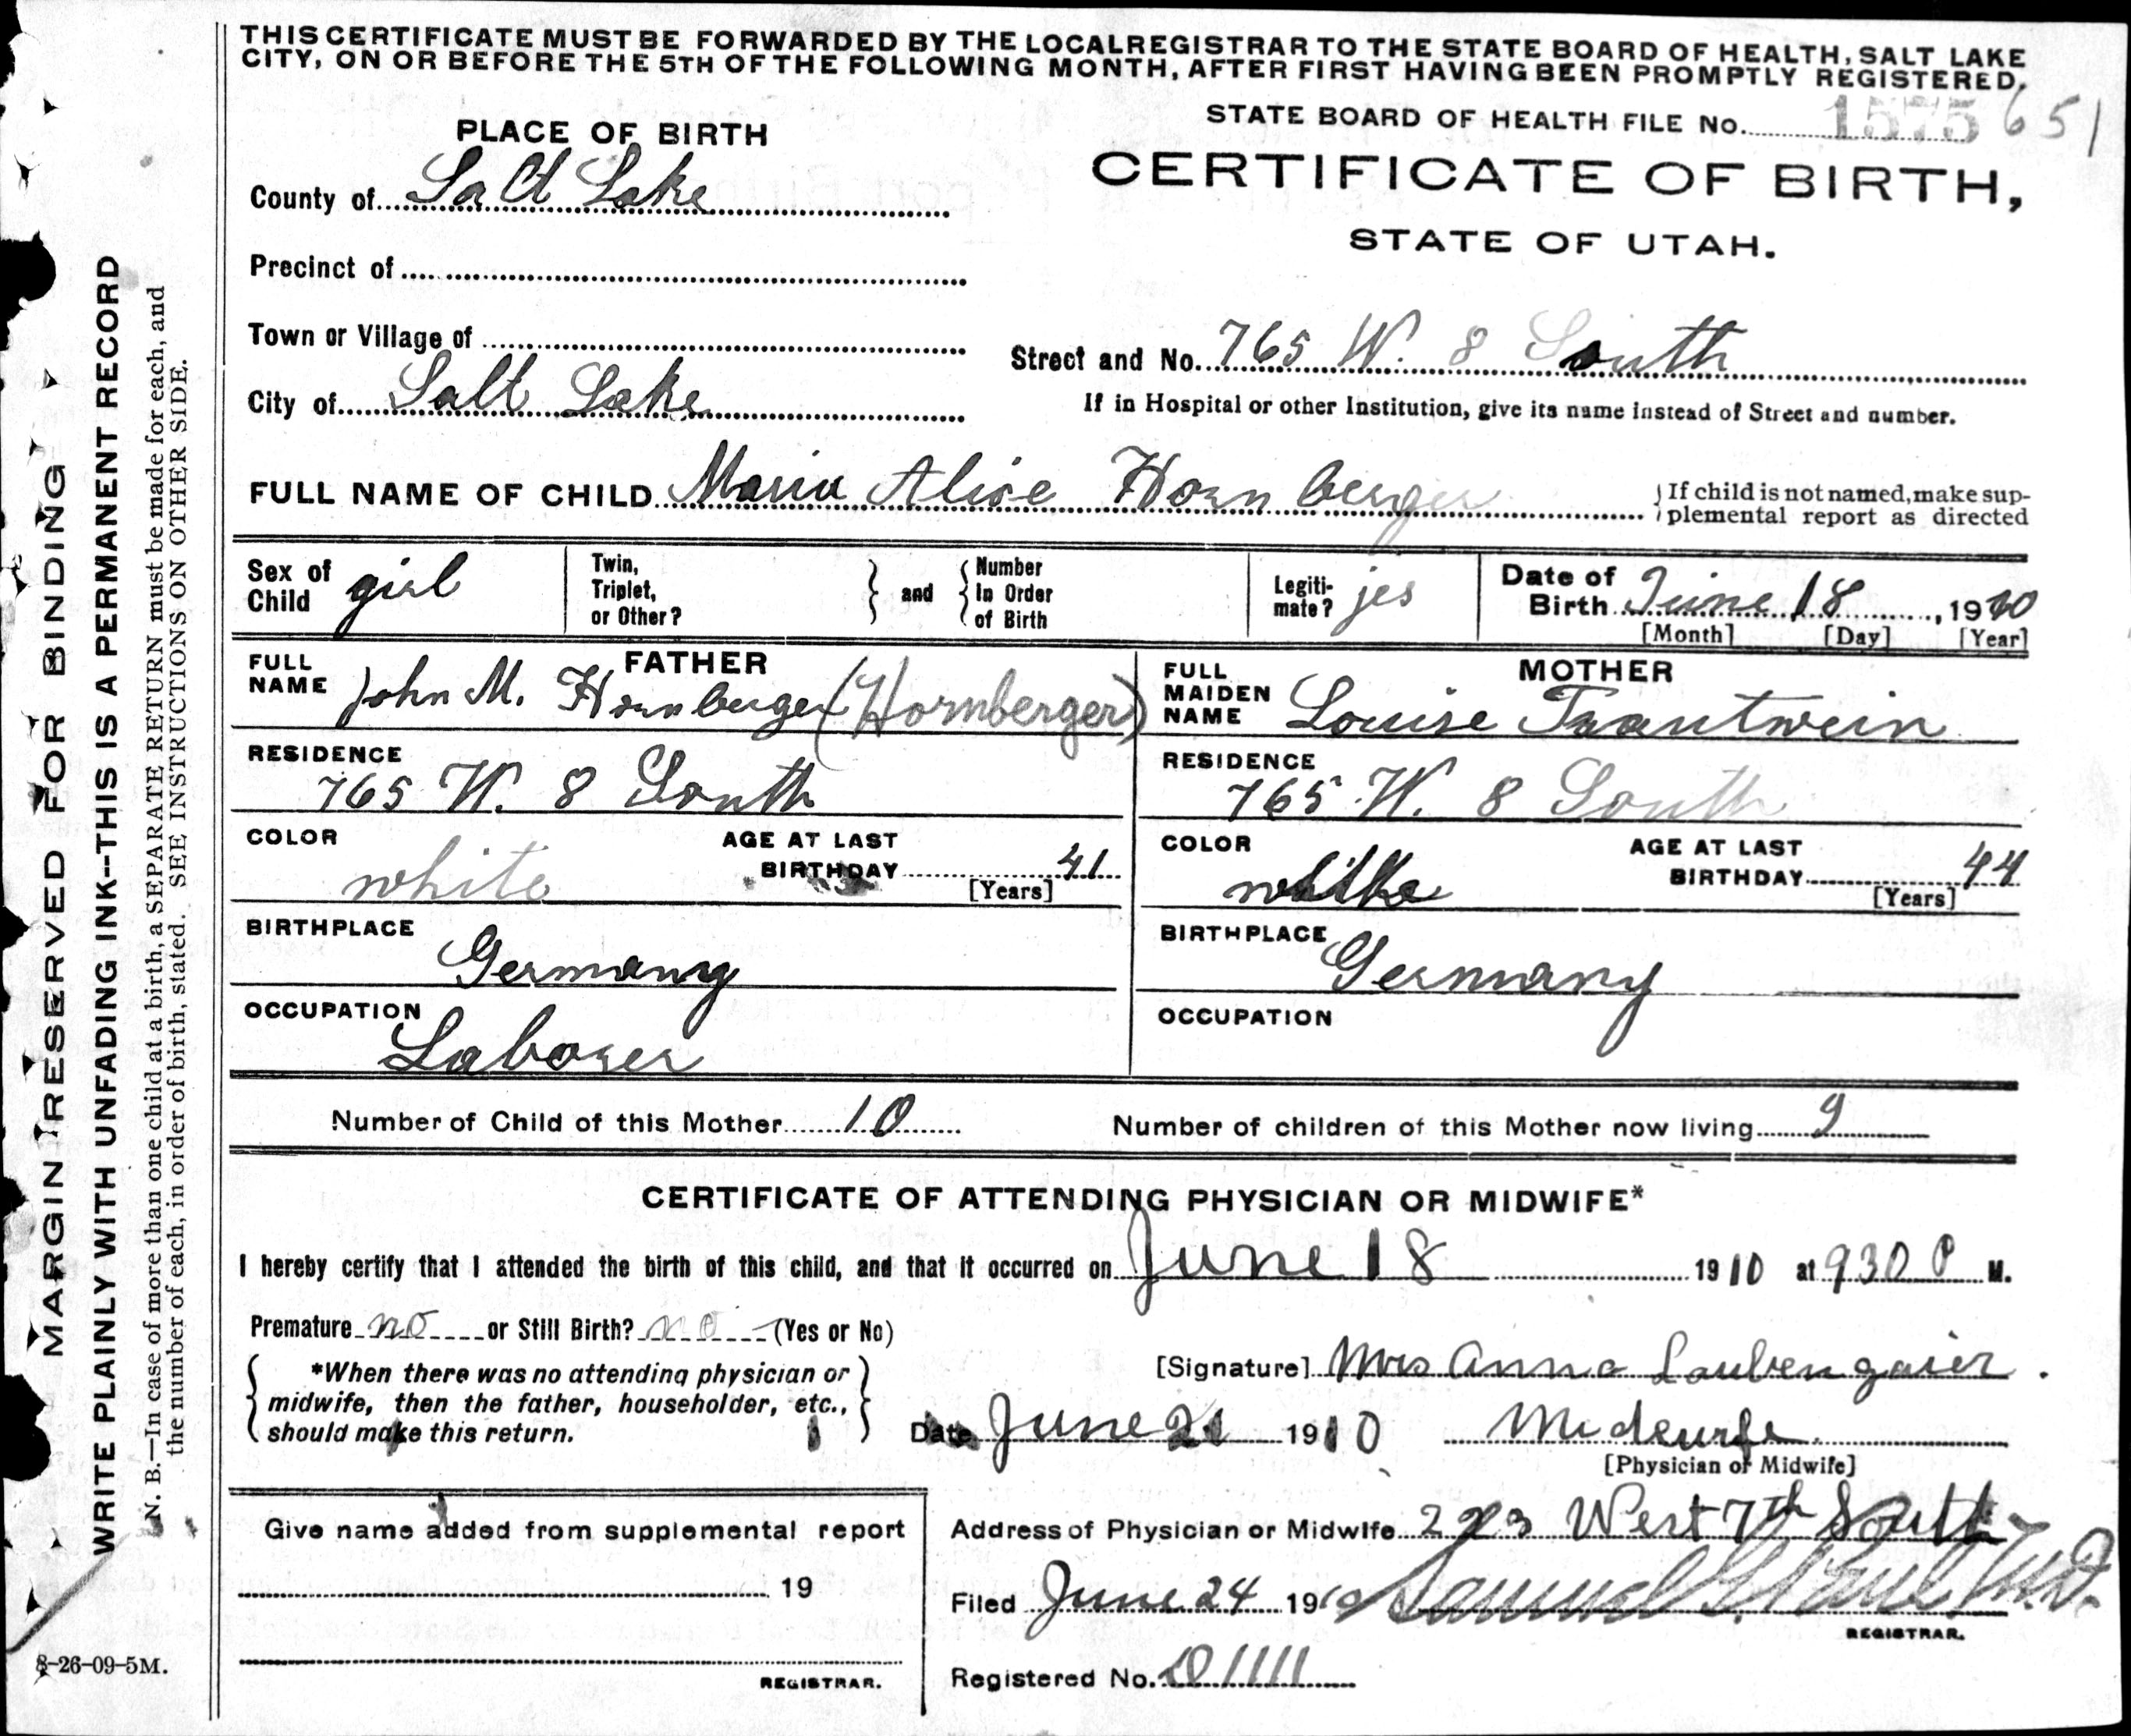 THIS CERTIFICATE MUST BE FORWARDED BY THE LOCAL REGISTRAR TO THE STATE BOARD OF HEALTH, SALT LAKE
CITY, ON OR BEFORE THE 5TH OF THE FOLLOWING MONTH, AFTER FIRST HAVING BEEN PROMPTLY REGISTERED.
STATE BOARD OF HEALTH FILE No. 1575 651
PLACE OF BIRTH
CERTIFICATE OF BIRTH,
STATE OF UTAH.
County of Salt Lake
Precinct of
Town or Village of
Street and No. 765 W. 8 South
City of Salt Lake
If in Hospital or other Institution, give its name instead of Street and number.
FULL NAME OF CHILD Maria Alise Hornberger
If child is not named, make sup-
plemental report as directed
Sex of Child girl
Twin, Triplet, or Other?
and
Number In Order of Birth
Legiti-mate? jes
Date of Birth June 18, 1910
[Month] [Day] [Year]
FATHER
FULL NAME John M. Hornberger (Hornberger)
MOTHER
FULL MAIDEN NAME Louise Trautwein
RESIDENCE
765 W. 8 South
RESIDENCE
765 W. 8 South
COLOR
white
AGE AT LAST BIRTHDAY 41
[Years]
COLOR
AGE AT LAST BIRTHDAY 44
[Years]
BIRTHPLACE
Germany
BIRTHPLACE
Germany
OCCUPATION
Laborer
OCCUPATION
Number of Child of this Mother 10
Number of children of this Mother now living 9
CERTIFICATE OF ATTENDING PHYSICIAN OR MIDWIFE*
I hereby certify that I attended the birth of this child, and that it occurred on June 18 1910 at 930 P M.
Premature no or Still Birth? no (Yes or No)
*When there was no attending physician or
midwife, then the father, householder, etc.,
should make this return.
[Signature] Mrs Anna Laubengaier.
Date June 21 1910 Midwife
[Physician or Midwife]
Give name added from supplemental report
19
REGISTRAR.
Address of Physician or Midwife West 7th South
Filed June 24 1910 Samuel G. Paul M.D.
REGISTRAR.
Registered No. 1111
MARGIN RESERVED FOR BINDING
WRITE PLAINLY WITH UNFADING INK--THIS IS A PERMANENT RECORD
N. B.—In case of more than one child at a birth, a SEPARATE RETURN must be made for each, and
the number of each, in order of birth, stated. SEE INSTRUCTIONS ON OTHER SIDE.
8-26-09-5M.